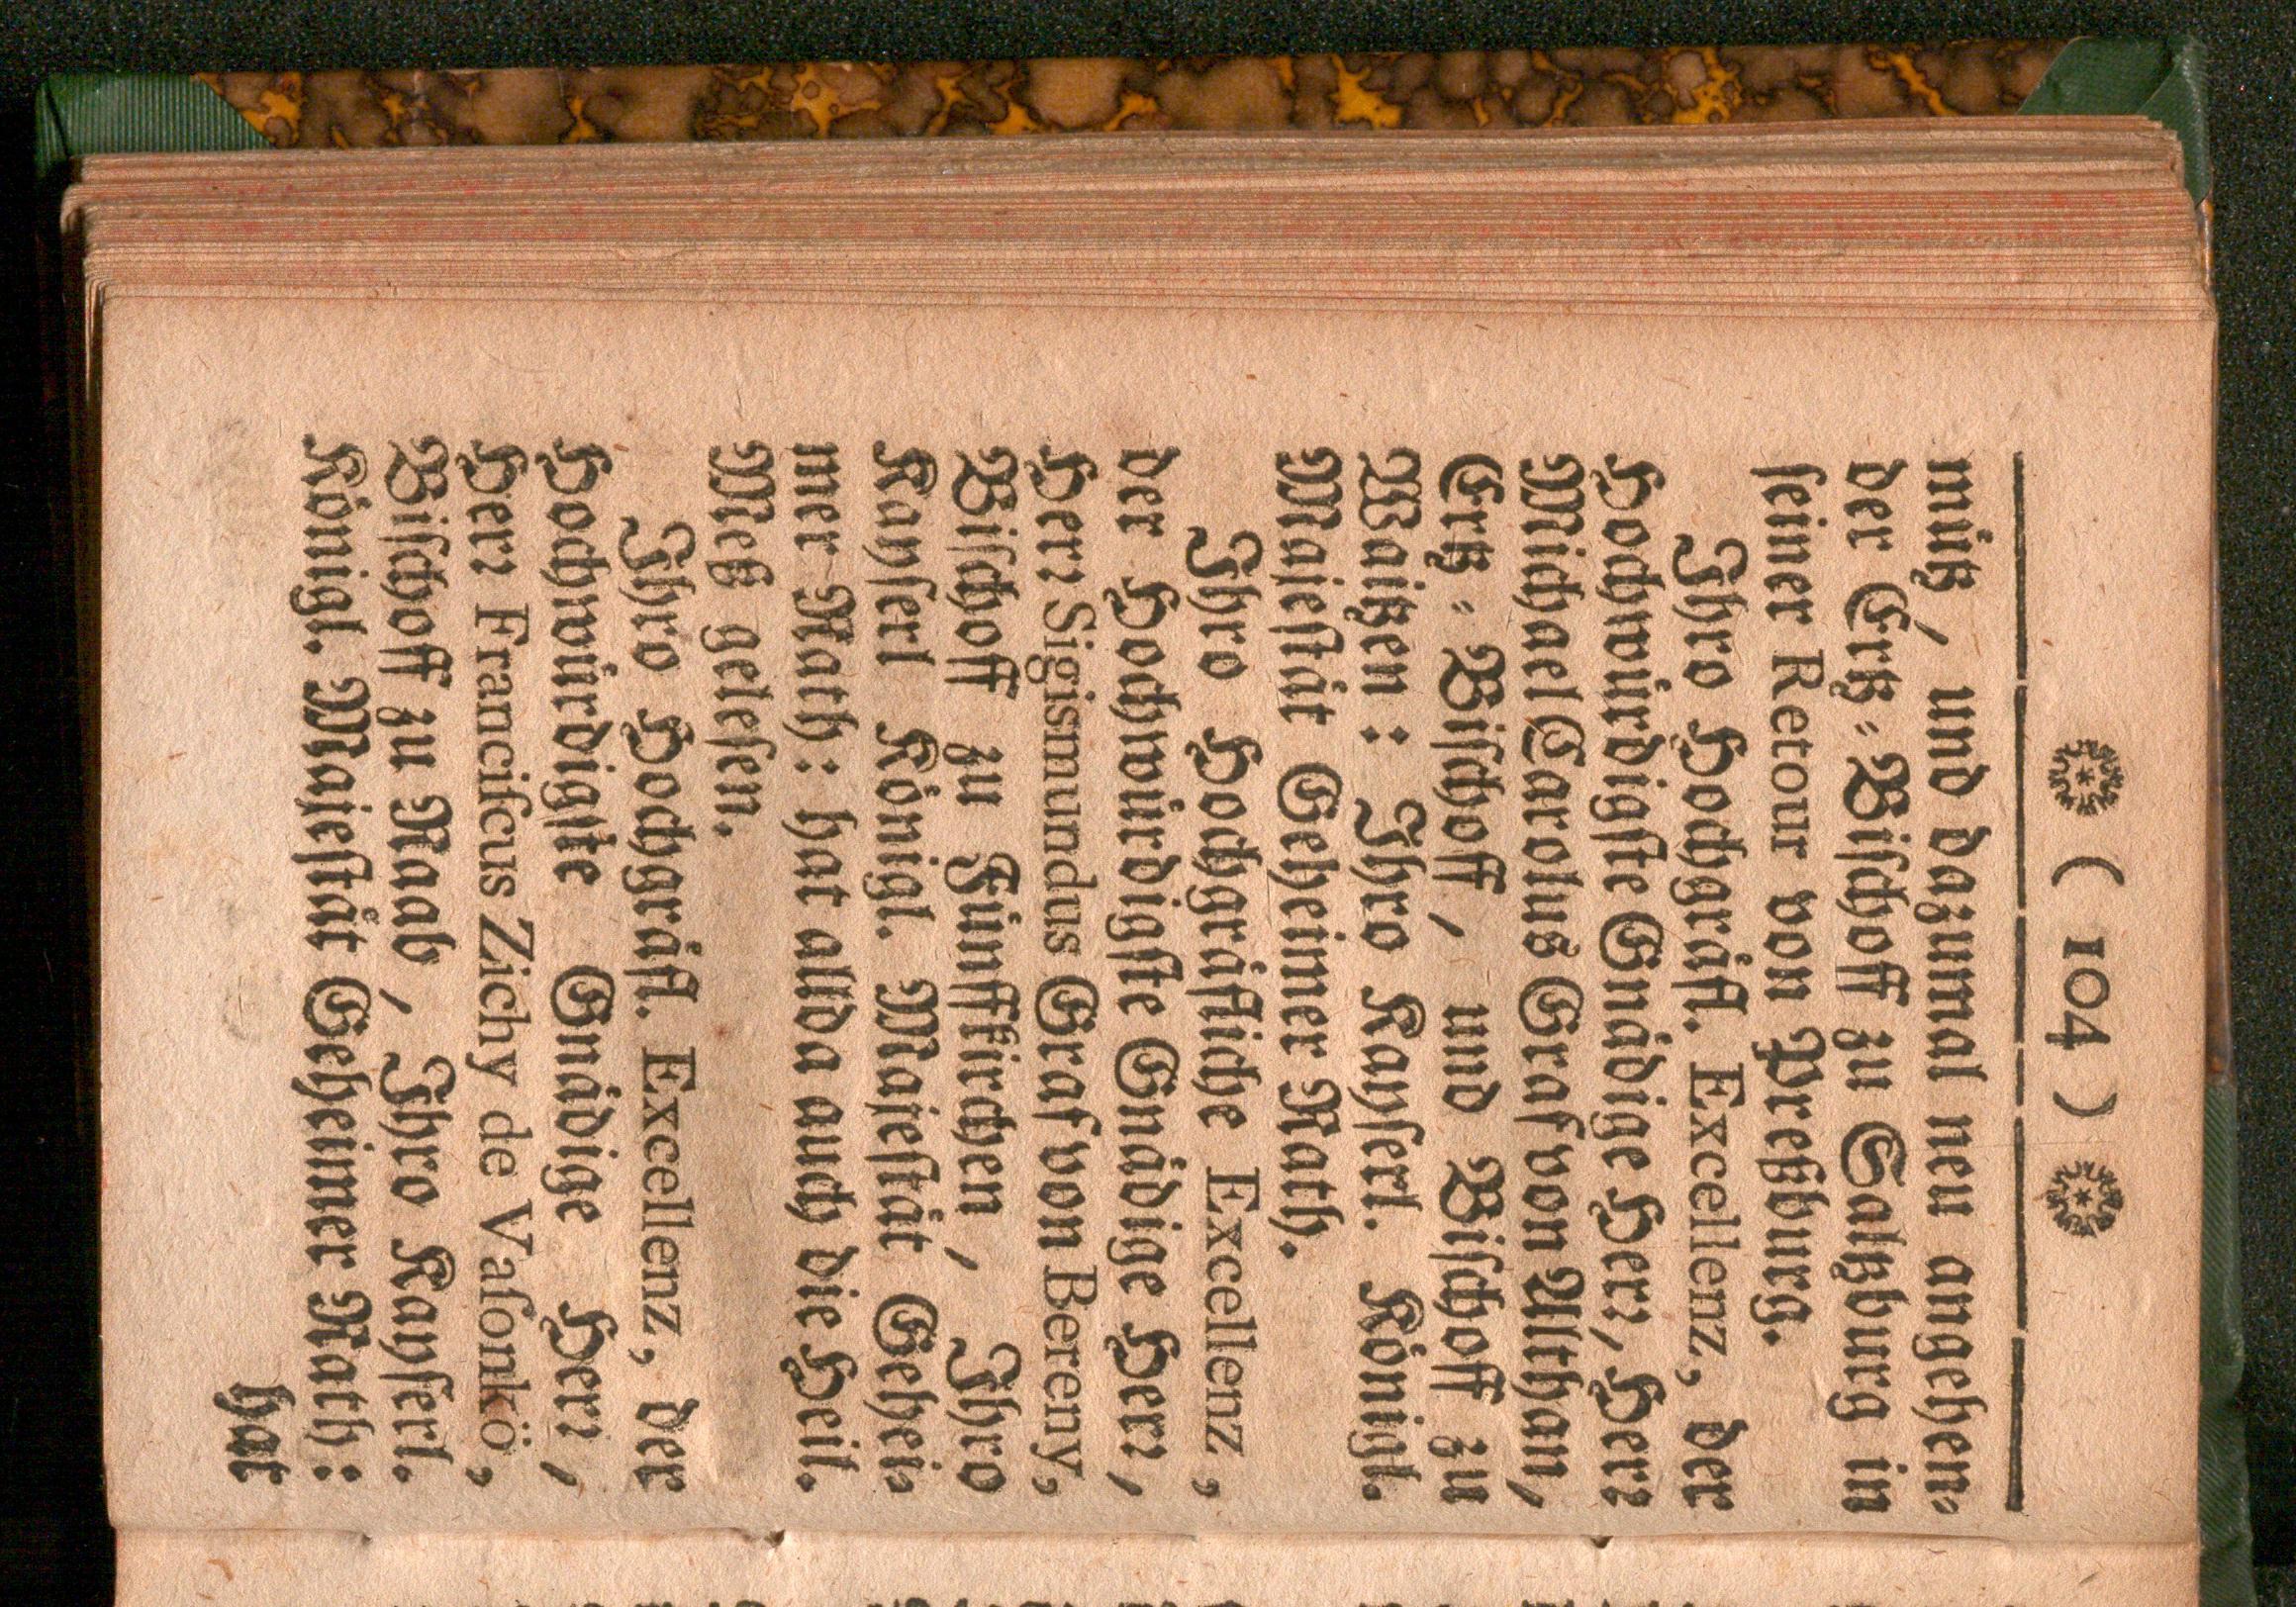 ( 104 )
mütz / und dazumal neu angehen=
der Ertz=Bischoff zu Saltzburg in
seiner Retour von Preßburg.
Ihro Hochgräfl. Excellenz, der
Hochwürdigste Gnädige Herr, Herr
Michael Carolus Graf von Althan,
Ertz=Bischoff / und Bischoff zu
Waitzen: Ihro Kayserl. Königl.
Majestät Geheimer Rath.
Ihro Hochgräfliche Excellenz,
der Hochwürdigste Gnädige Herr,
Herr Sigismundus Graf von Bereny,
Bischoff zu Fünffkirchen / Ihro
Kayserl Königl. Majestät Gehei=
mer Rath: hat allda auch die Heil.
Meß gelesen.
Ihro Hochgräfl. Excellenz, der
Hochwürdigste Gnädige Herr,
Herr Franciſcus Zichy de Vaſonkö,
Bischoff zu Raab / Ihro Kayserl.
Königl. Majestät Geheimer Rath:
hat